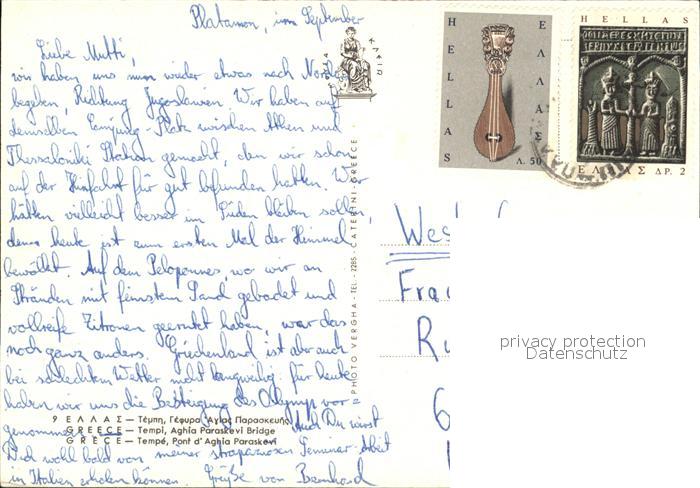 Platamon, im September
Liebe Mutti,
wir haben uns nun wieder etwas nach Norden
begeben, Richtung Jugoslawien. Wir haben auf
demselben Camping-Platz zwischen Athen und
Thessaloniki Station gemacht, den wir schon
auf der Hinfahrt für gut befunden hatten. Wir
hätten vielleicht besser im Süden bleiben sollen,
denn heute ist zum ersten Mal der Himmel
bewölkt. Auf dem Peloponnes, wo wir an
Stränden mit feinstem Sand gebadet und
vollreife Zitronen geerntet haben, war das
noch ganz anders. Griechenland ist aber auch
bei schlechtem Wetter nicht langweilig: für heute
haben wir uns die Besteigung des Olymp vor=
genommen. Auch Du wirst
Dich wohl bald von meiner strapaziösen Seminar-Arbeit
in Italien erholen können. Grüße von Bernhard
9 ΕΛΛΑΣ — Τέμπη, Γέφυρα Ἁγίας Παρασκευῆς
GREECE — Tempi, Aghia Paraskevi Bridge
GRÈCE — Tempé, Pont d'Aghia Paraskevi
PHOTO VERGHA - TEL.: 2285 - CATERINI-GREECE
HELLAS
ΕΛΛΑΣ
Λ. 50
HELLAS
ΕΛΛΑΣ ΔΡ. 2
Wes
Fra
R
6
privacy protection
Datenschutz